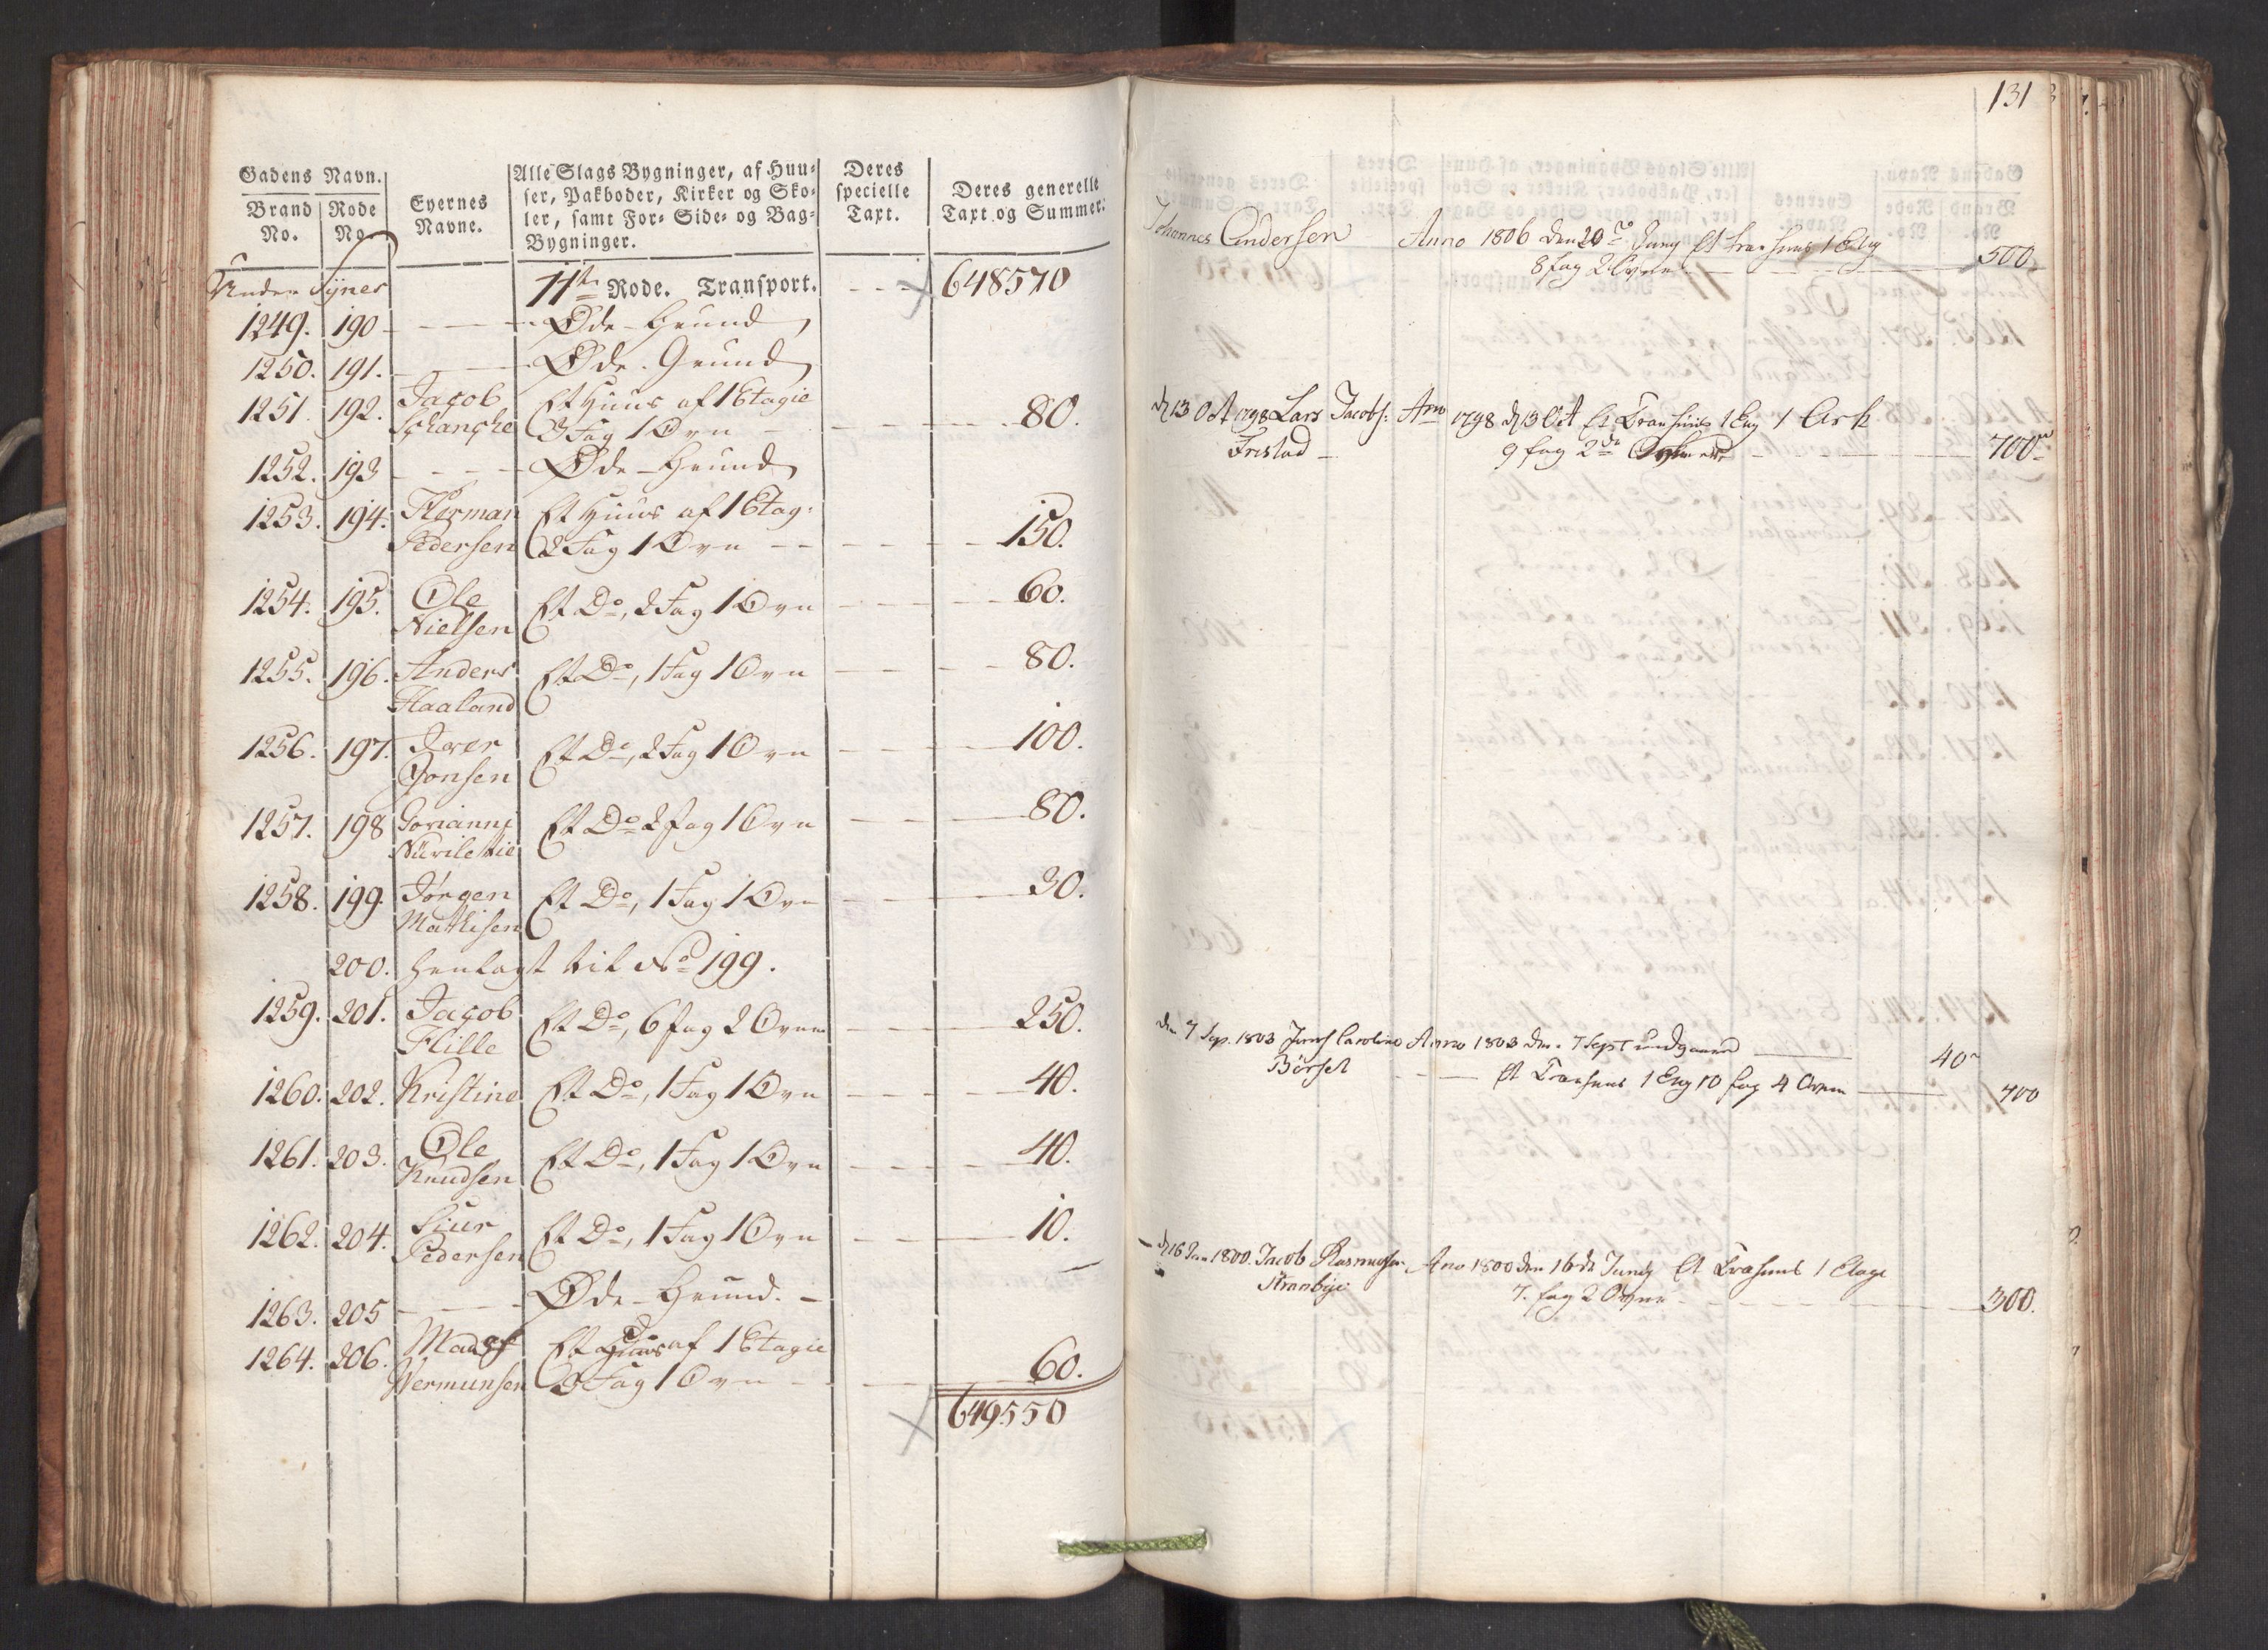 Gadens Navn.
Brand No. Rode No.
Eyernes Navne.
Alle Slags Bygninger, af Huu-
ser, Pakboder, Kirker og Sko-
ler, samt For- Side- og Bag-
Bygninger.
Deres specielle Taxt.
Deres generelle Taxt og Summer.
Under Synes 11te Rode. Transport. 648570
1249. 190 Øde-Grund
1250. 191. Øde-Grund
1251. 192. Jacob Et Huus af 1 Etagie
Schanche 3 Fag 1 Ovn 80.
1252. 193 Øde-Grund
1253. 194. Herman Et Huus af 1 Etag:
Pedersen 2 Fag 1 Ovn 150.
1254. 195. Ole Et Do, 2 Fag 1 Ovn 60.
Nielsen
1255. 196. Anders Et Do, 1 Fag 1 Ovn 80.
Haaland
1256. 197. Iver Et Do, 2 Fag 1 Ovn 100.
Jonsen
1257. 198 Et Do 2 fag 1 Ovn 80.
1258. 199. Jørgen Et Do, 1 Fag 1 Ovn 30.
Mathisen
200. henlagt til No 199.
1259. 201. Jacob Et Do, 6 fag 2 Ovne 250.
Hille
1260. 202. Kristine Et Do, 1 Fag 1 Ovn 40.
1261. 203. Ole Et Do, 1 Fag 1 Ovn 40.
Knudsen
1262. 204. Siur Et Do, 1 Fag 1 Ovn 10.
Pedersen
1263. 205 Øde-Grund.
1264. 206. Mads Et Huus af 1 Etagie
Vermunsen 3 Fag 1 Ovn 60.
649550
131
Johannes Andersen Anno 1806 den 20de Juny Et træhuus 1 Etag
8 fag 2 Ovne 500.
d 13 Oct 1798 Lars Jacobs: Ano 1798 d 13 Oct Et Træhuus 1 Etag 1 Ark
Frestad 9 fag 2de 700
den 7 Sep. 1803 Caroline Anno 1803 den 7 Sept udgaaed 40
Børset Et Træhuus 1 Etag 10 fag 4 Ovne 700
d 16 1800. Jacob Rasmusen Ano 1800 den 16de Juny Et Træhuus 1 Etage
7. fag 2 Ovne 300.